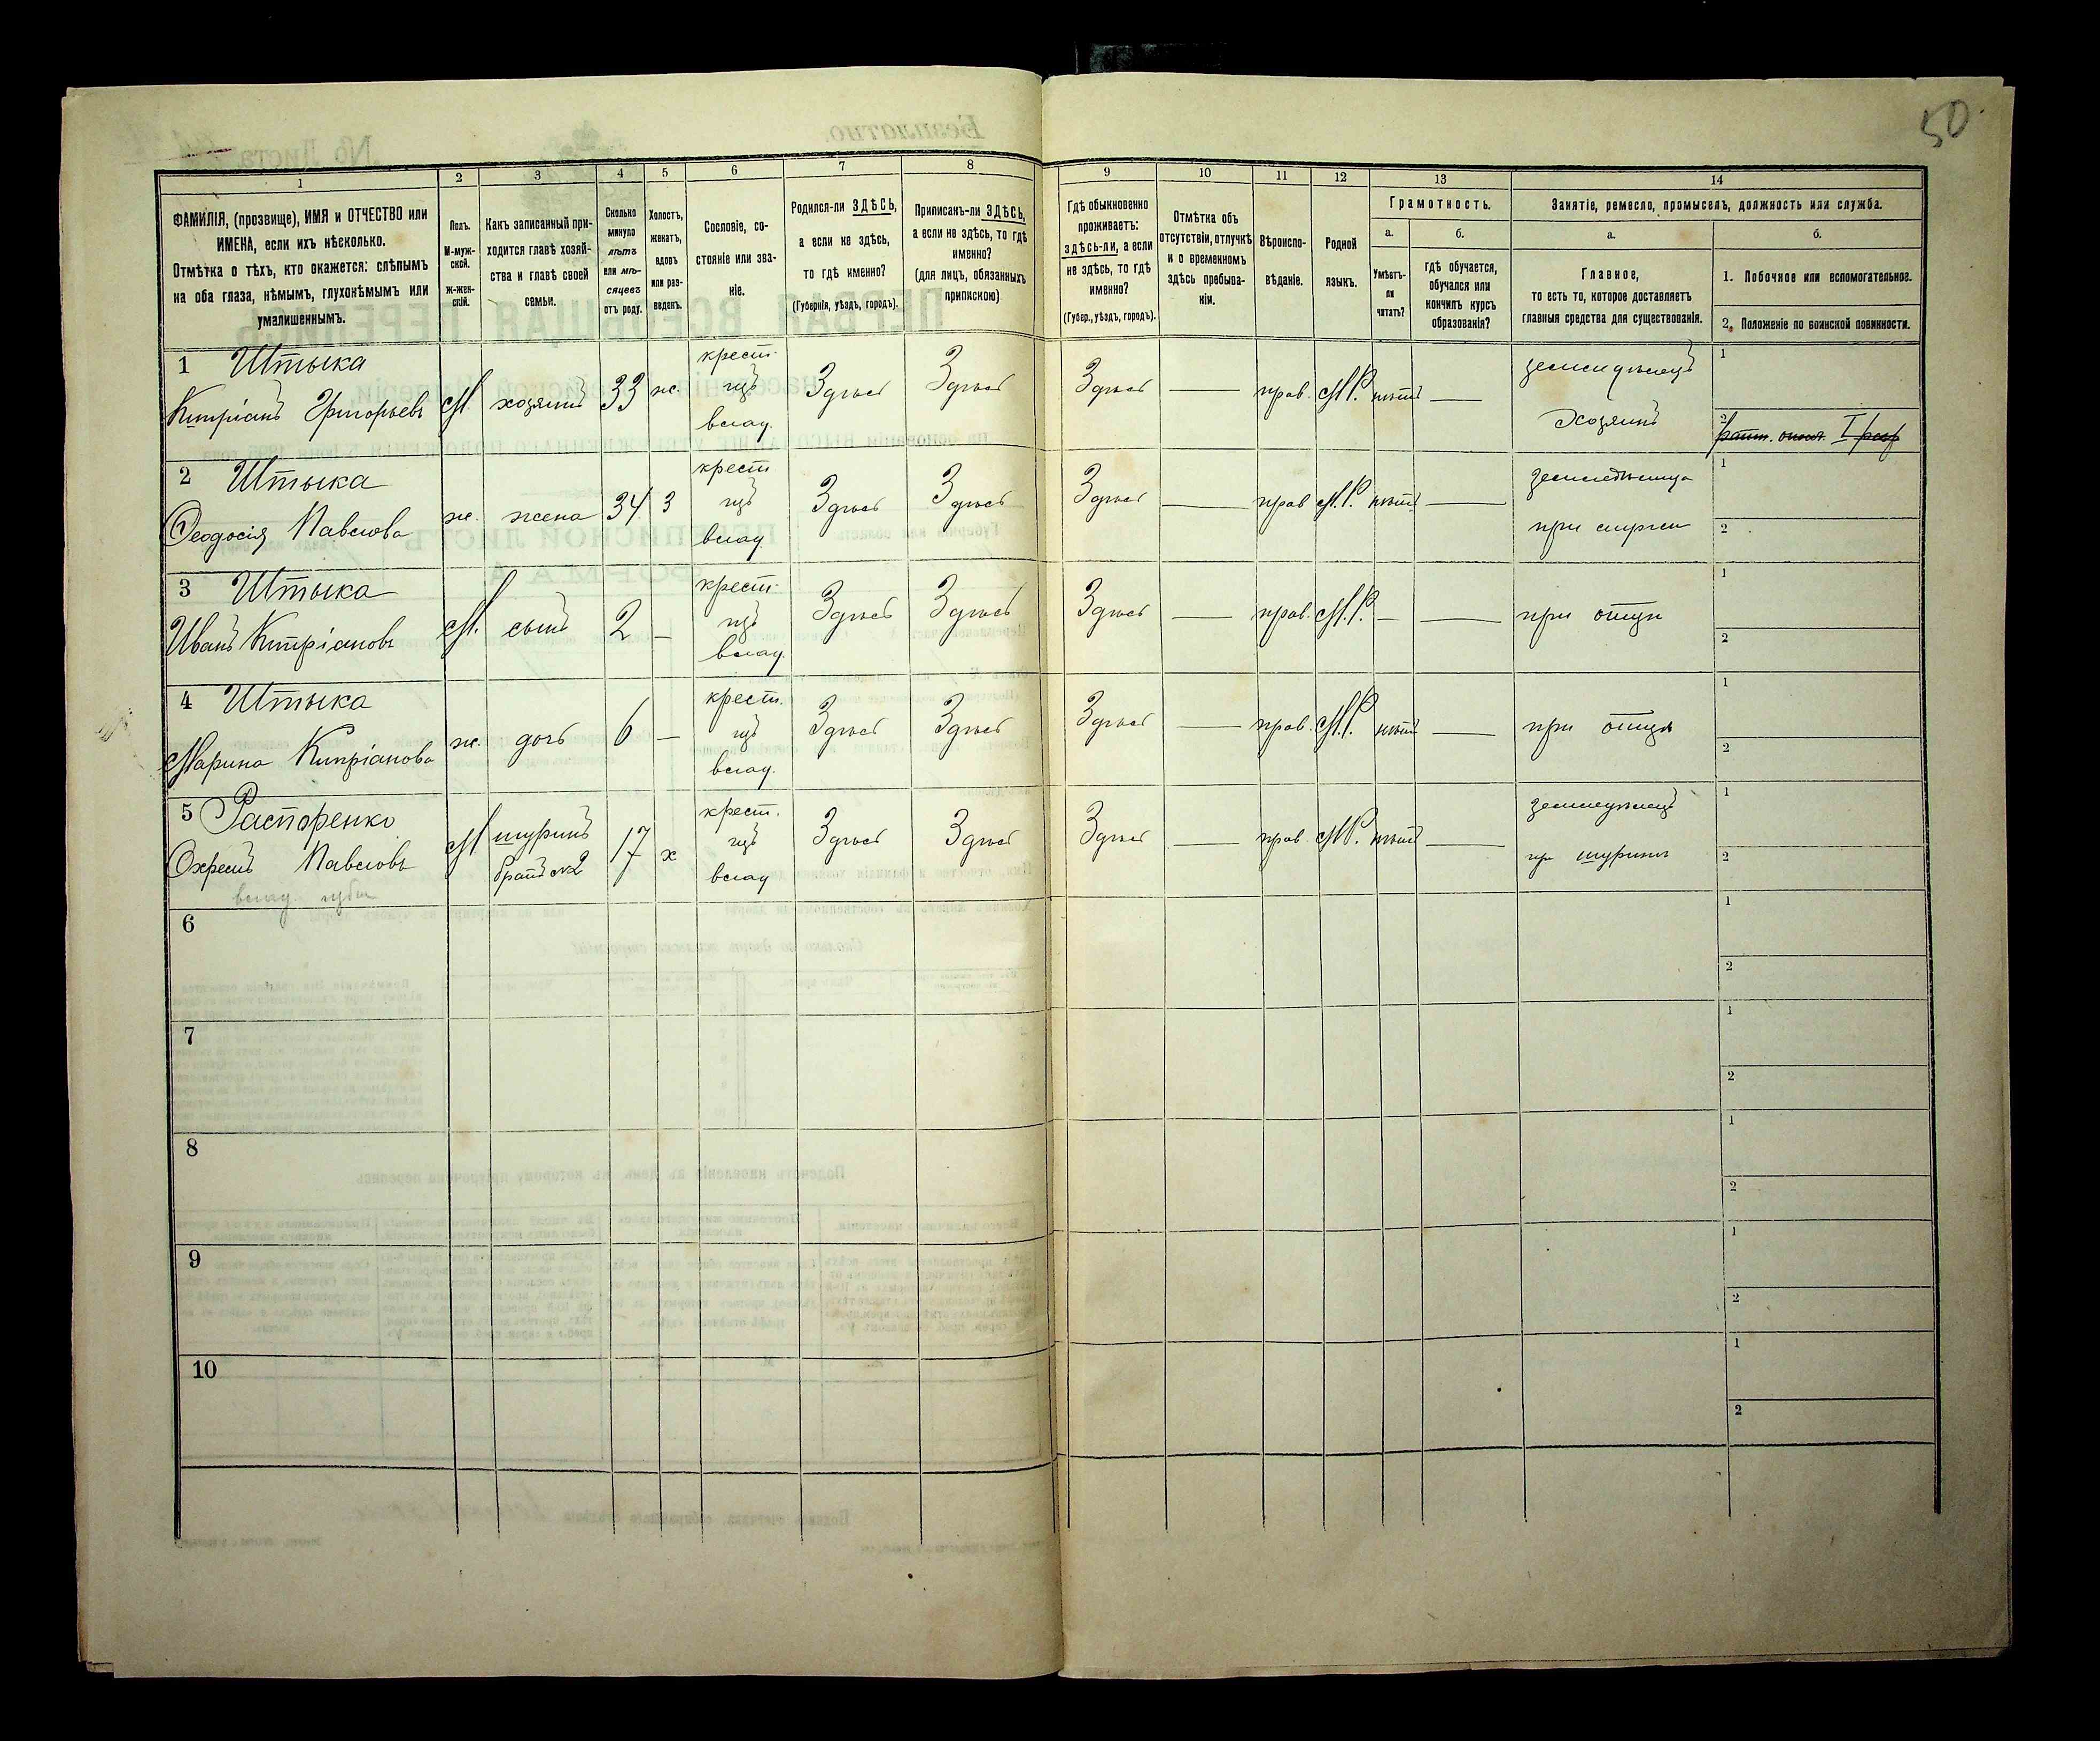 50
1 2 3 4 5 6 7 8 9 10 11 12 13 14
ФАМИЛІЯ, (прозвище), ИМЯ и ОТЧЕСТВО или
ИМЕНА, если ихъ нѣсколько.
Отмѣтка о тѣхъ, кто окажется: слѣпымъ
на оба глаза, нѣмымъ, глухонѣмымъ или
умалишеннымъ.
Полъ.
М-муж-
ской.
Ж-жен-
скій.
Какъ записанный при-
ходится главѣ хозяй-
ства и главѣ своей
семьи.
Сколько
минуло
лѣтъ
или мѣ-
сяцевъ
отъ роду.
Холостъ,
женатъ,
вдовъ
или раз-
веденъ.
Сословіе, со-
стояніе или зва-
ніе.
Родился-ли ЗДѢСЬ,
а если не здѣсь,
то гдѣ именно?
(Губернія, уѣздъ, городъ).
Приписанъ-ли ЗДѢСЬ,
а если не здѣсь, то гдѣ
именно?
(для лицъ, обязанныхъ
припискою)
Гдѣ обыкновенно
проживаетъ:
здѣсь-ли, а если
не здѣсь, то гдѣ
именно?
(Губер., уѣздъ, городъ).
Отмѣтка объ
отсутствіи, отлучкѣ
и о временномъ
здѣсь пребыва-
ніи.
Вѣроиспо-
вѣданіе.
Родной
языкъ.
Грамотность.
а.
Умѣетъ-
ли
читать?
б.
гдѣ обучается,
обучался или
кончилъ курсъ
образованія?
Занятіе, ремесло, промыселъ, должность или служба.
а.
Главное,
то есть то, которое доставляетъ
главныя средства для существованія.
б.
1. Побочное или вспомогательное.
2. Положеніе по воинской повинности.
1 Штыка
Кипріанъ Григорьевъ М. хозяинъ 33 ж.
крест.
влад.
Здѣсь Здѣсь Здѣсь — прав. М.Р. нѣтъ —
земледѣлецъ
Хозяинъ
1
2
2 Штыка
Феодосія Павлова ж. жена 34 з
крест
влад.
Здѣсь Здѣсь Здѣсь — прав М.Р. нѣтъ —
при
1
2
3 Штыка
Иванъ Кипріановъ М. сынъ 2 —
крест.
влад.
Здѣсь Здѣсь Здѣсь — прав. М.Р. — —
при отцѣ
1
2
4 Штыка
Марина Кипріанова ж. дочь 6 —
крест.
влад.
Здѣсь Здѣсь Здѣсь — прав. М.Р. нѣтъ —
при отцѣ
1
2
5 Расторенко
Павловъ М шуринъ
братъ №2 17 х
крест.
влад
Здѣсь Здѣсь Здѣсь — прав М.Р. нѣтъ —
земледѣлецъ
при
1
2
6
1
2
7
1
2
8
1
2
9
1
2
10
1
2